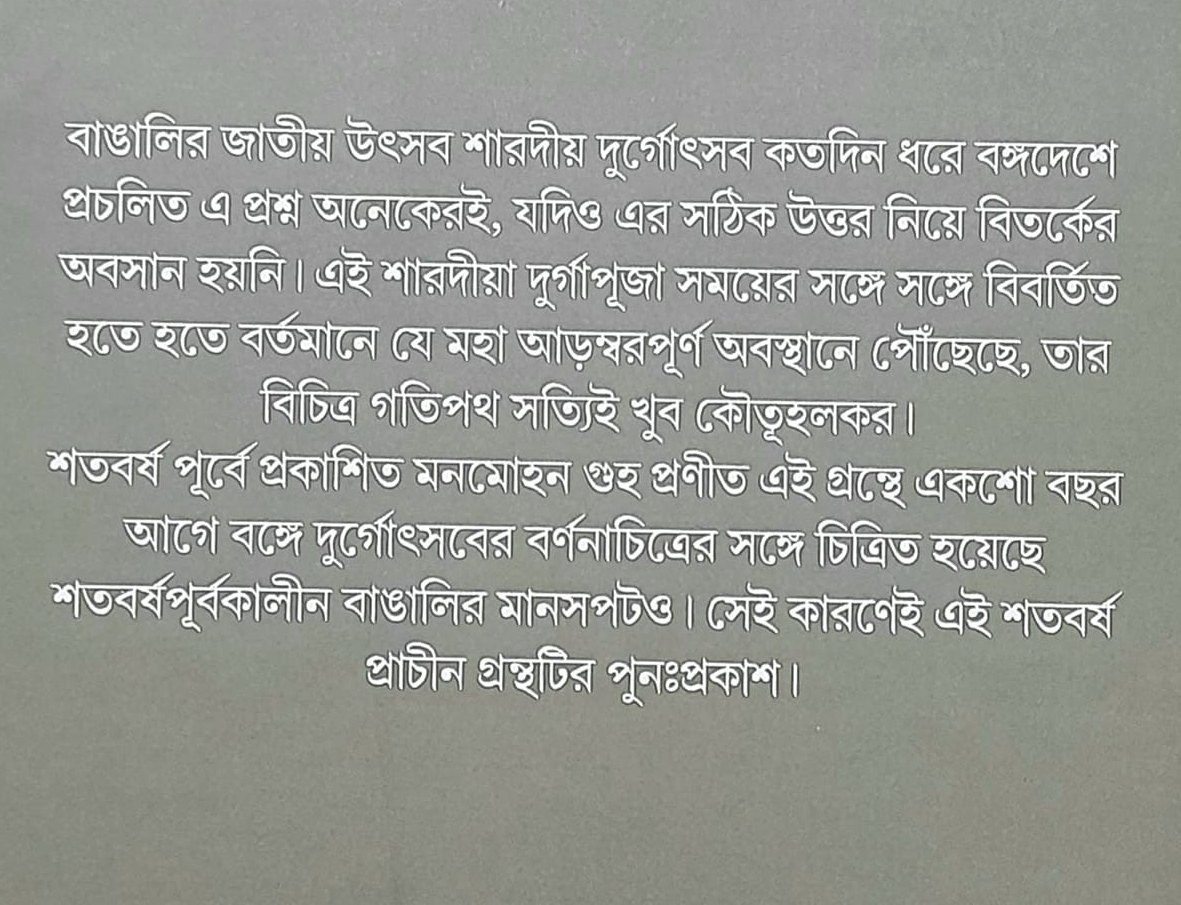 বাঙালির জাতীয় উৎসব শারদীয় দুর্গোৎসব কতদিন ধরে বঙ্গদেশে
প্রচলিত এ প্রশ্ন অনেকেরই, যদিও এর সঠিক উত্তর নিয়ে বিতর্কের
অবসান হয়নি। এই শারদীয়া দুর্গাপূজা সময়ের সঙ্গে সঙ্গে বিবর্তিত
হতে হতে বর্তমানে যে মহা আড়ম্বরপূর্ণ অবস্থানে পৌঁছেছে, তার
বিচিত্র গতিপথ সত্যিই খুব কৌতূহলকর।
শতবর্ষ পূর্বে প্রকাশিত মনমোহন গুহ প্রণীত এই গ্রন্থে একশো বছর
আগে বঙ্গে দুর্গোৎসবের বর্ণনাচিত্রের সঙ্গে চিত্রিত হয়েছে
শতবর্ষপূর্বকালীন বাঙালির মানসপটও। সেই কারণেই এই শতবর্ষ
প্রাচীন গ্রন্থটির পুনঃপ্রকাশ।